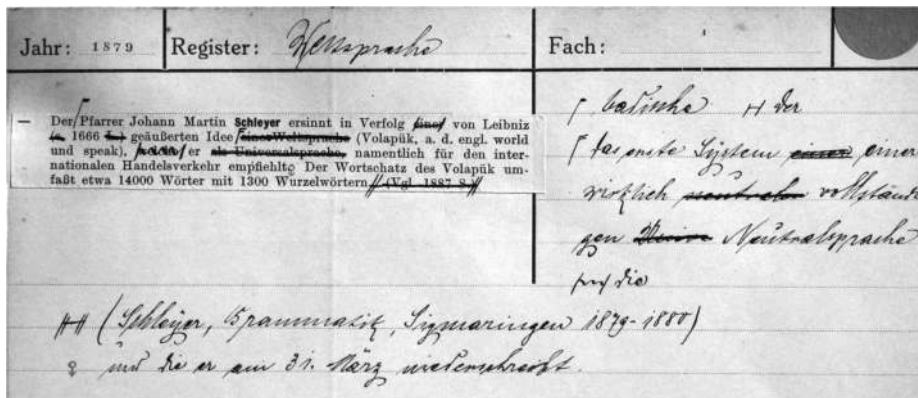 Jahr: 1879 Register: Weltsprache Fach:
— Der Pfarrer Johann Martin Schleyer ersinnt in Verfolg einer von Leibniz
(s. 1666 L.) geäußerten Idee einer Weltsprache (Volapük, a. d. engl. world
und speak), er als Universalsprache, namentlich für den inter-
nationalen Handelsverkehr empfiehlt. Der Wortschatz des Volapük um-
faßt etwa 14000 Wörter mit 1300 Wurzelwörtern. (Vgl. 1887 S.)
badische H der
das erste System einer einer
wirklich neutralen vollständi
gen Neutralsprache
die
(Schleyer, Grammatik, Sigmaringen 1879-1880)
und die er am 31. März niederschreibt.